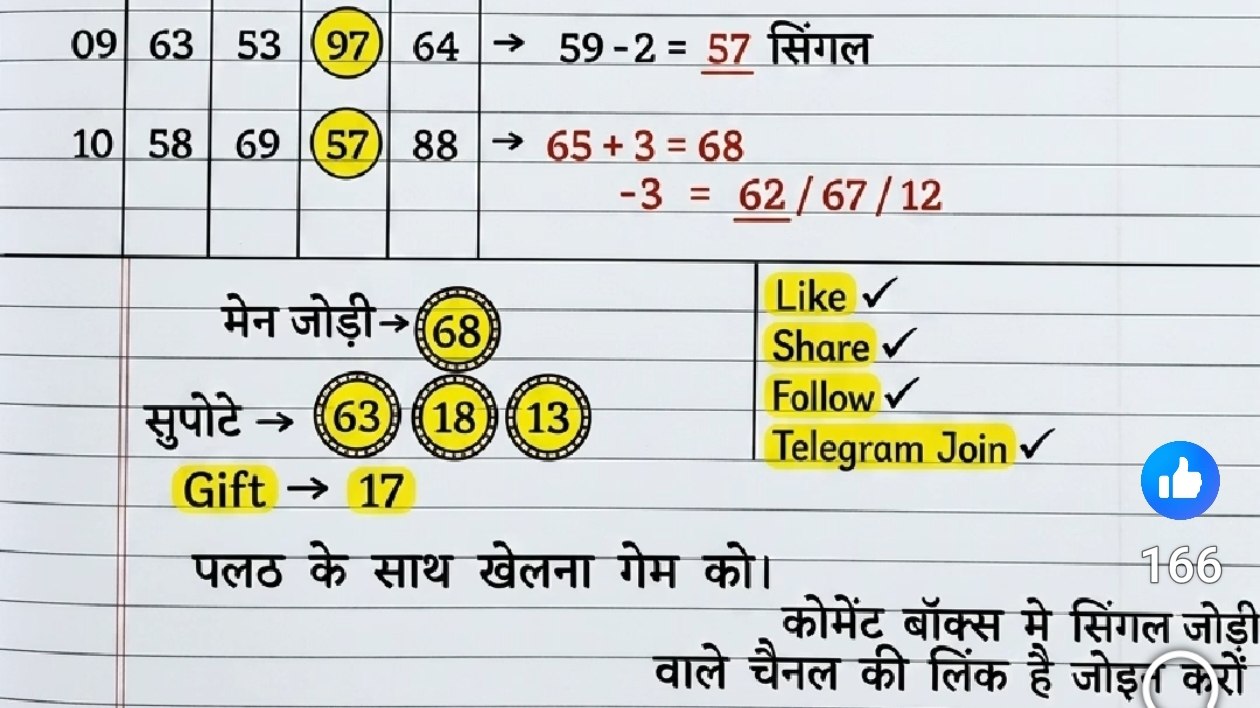 09 63 53 97 64 → 59 - 2 = 57 सिंगल
10 58 69 57 88 → 65 + 3 = 68
-3 = 62 / 67 / 12
मेन जोड़ी → 68
सुपोटे → 63 18 13
Gift → 17
Like ✓
Share ✓
Follow ✓
Telegram Join ✓
166
पलठ के साथ खेलना गेम को।
कोमेंट बॉक्स मे सिंगल जोड़ी
वाले चैनल की लिंक है जोइन करों